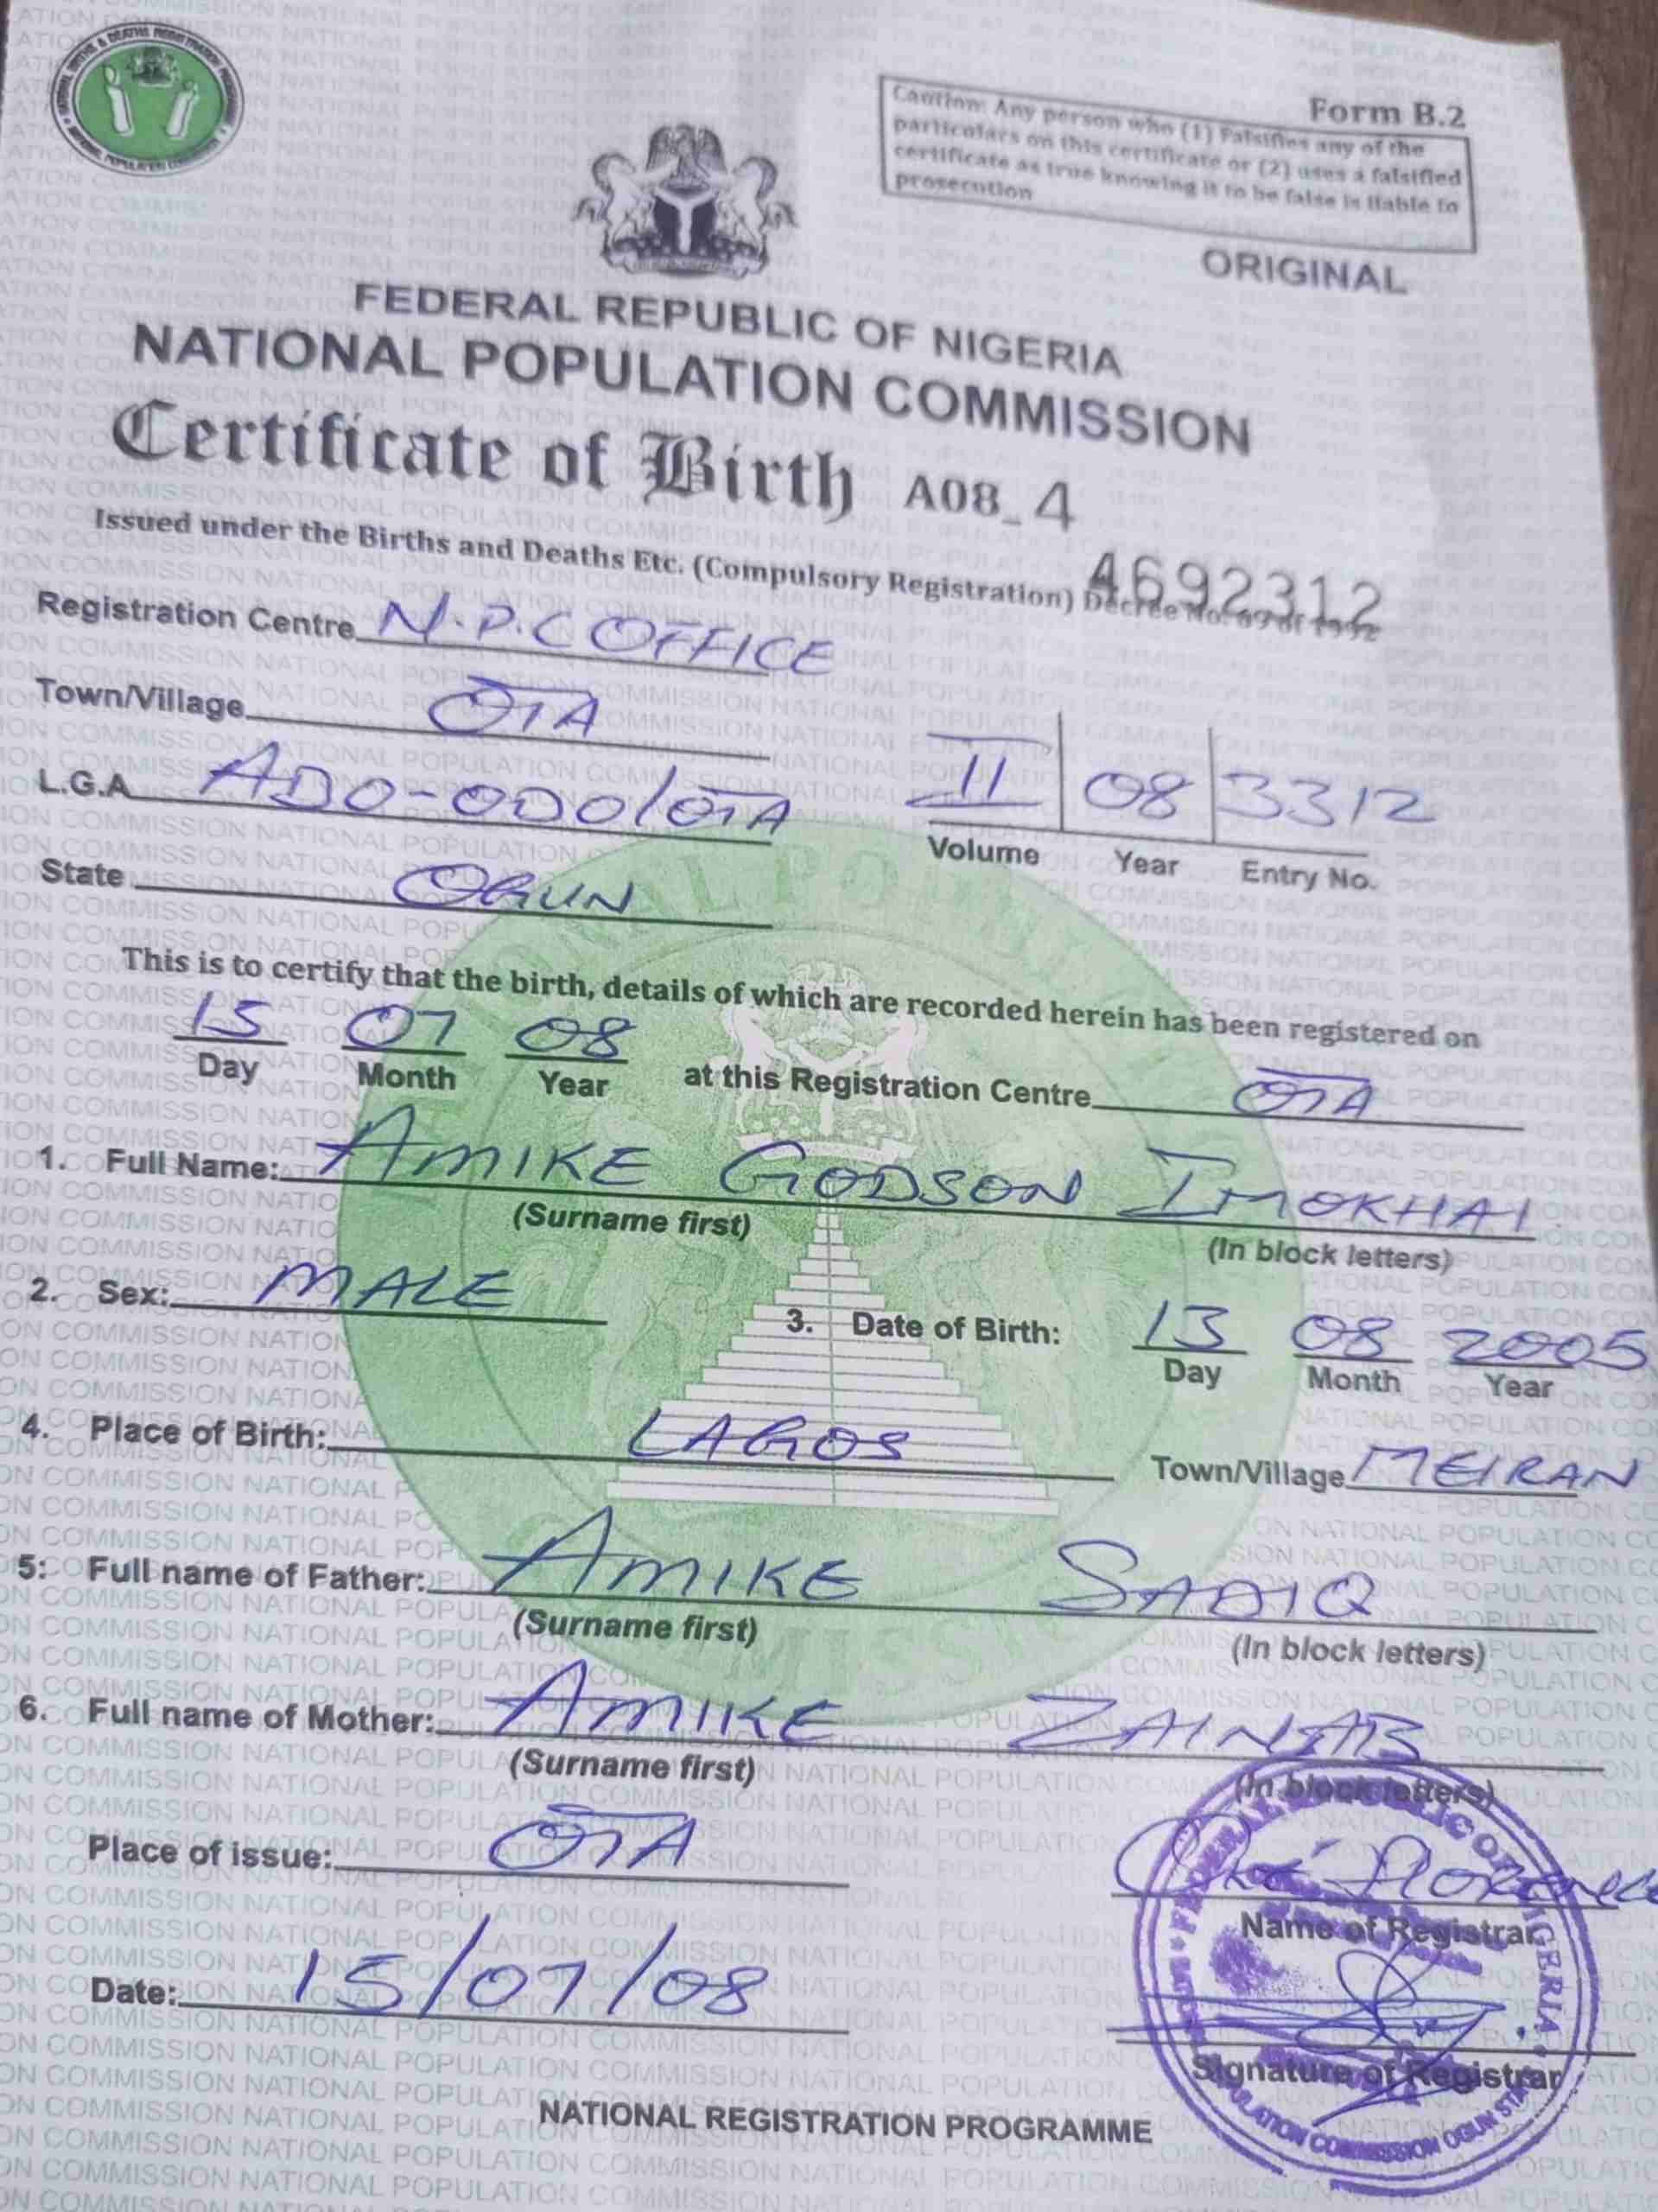 Form B.2
Caution: Any person who (1) Falsifies any of the
particulars on this certificate or (2) uses a falsified
certificate as true knowing it to be false is liable to
prosecution
ORIGINAL
FEDERAL REPUBLIC OF NIGERIA
NATIONAL POPULATION COMMISSION
Certificate of Birth A08_4
4692312
Issued under the Births and Deaths Etc. (Compulsory Registration) Decree No. 69 of 1992
Registration Centre N.P.C OFFICE
Town/Village OTA
L.G.A ADO-ODO/OTA
State OGUN
II 08 3312
Volume Year Entry No.
This is to certify that the birth, details of which are recorded herein has been registered on
15 07 08
Day Month Year at this Registration Centre OTA
1. Full Name: AMIKE GODSON IMOKHAI
(Surname first) (In block letters)
2. Sex: MALE
3. Date of Birth: 13 08 2005
Day Month Year
4. Place of Birth: LAGOS Town/Village MEIRAN
5: Full name of Father: AMIKE SADIQ
(Surname first) (In block letters)
6. Full name of Mother: AMIKE ZAINAB
(Surname first) (In block letters)
Place of issue: OTA
Name of Registrar
Date: 15/07/08
Signature of Registrar
FEDERAL REPUBLIC OF NIGERIA
POPULATION COMMISSION OGUN STATE
NATIONAL REGISTRATION PROGRAMME